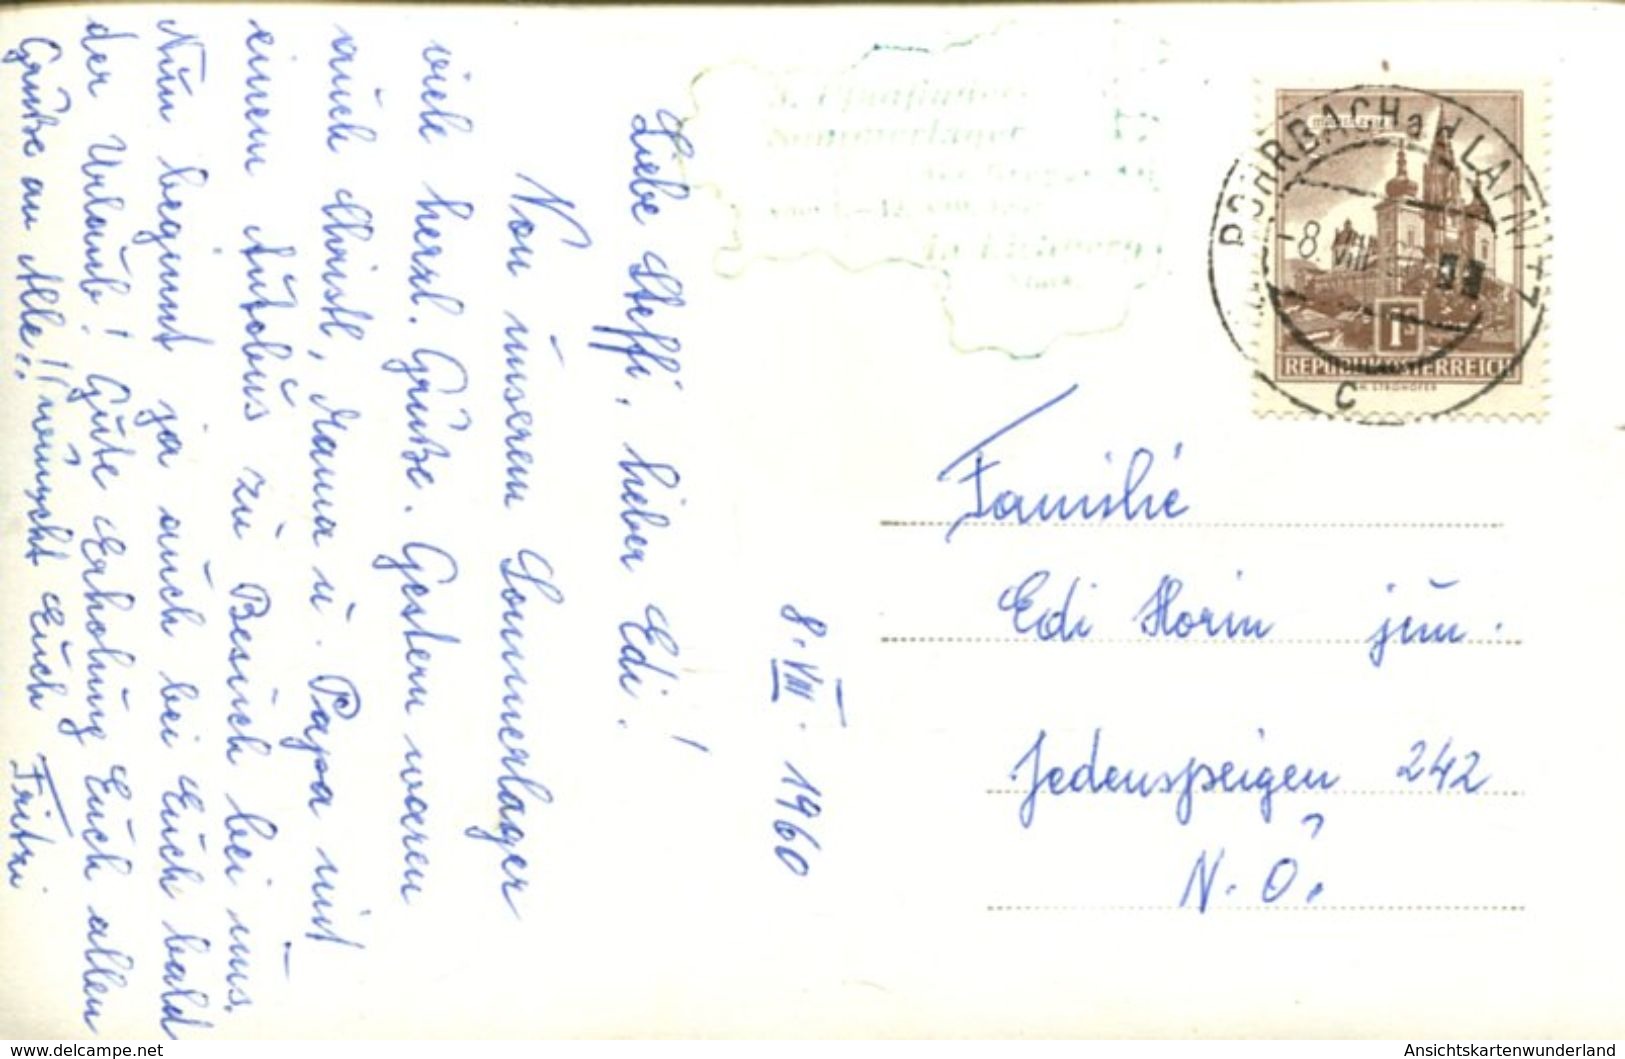 8. VIII. 1960
Liebe Steffi, lieber Edi!
Von unserem Sommerlager
viele herzl. Grüße. Gestern waren
auch Christl, Mama u. Papa mit
einem Autobus zu Besuch bei uns.
Nun beginnt ja auch bei Euch bald
der Urlaub! Gute Erholung Euch allen
wünscht Euch Fritzi
Grüße an Alle!!
Sommerlager
ROHRBACH a d LAFNITZ
-8. VIII
C
1S
REPUBLIK ÖSTERREICH
H. STROHOFER
Familie
Edi Horin jun.
Jedenspeigen 242
N.Ö.
www.delcampe.net
Ansichtskartenwunderland